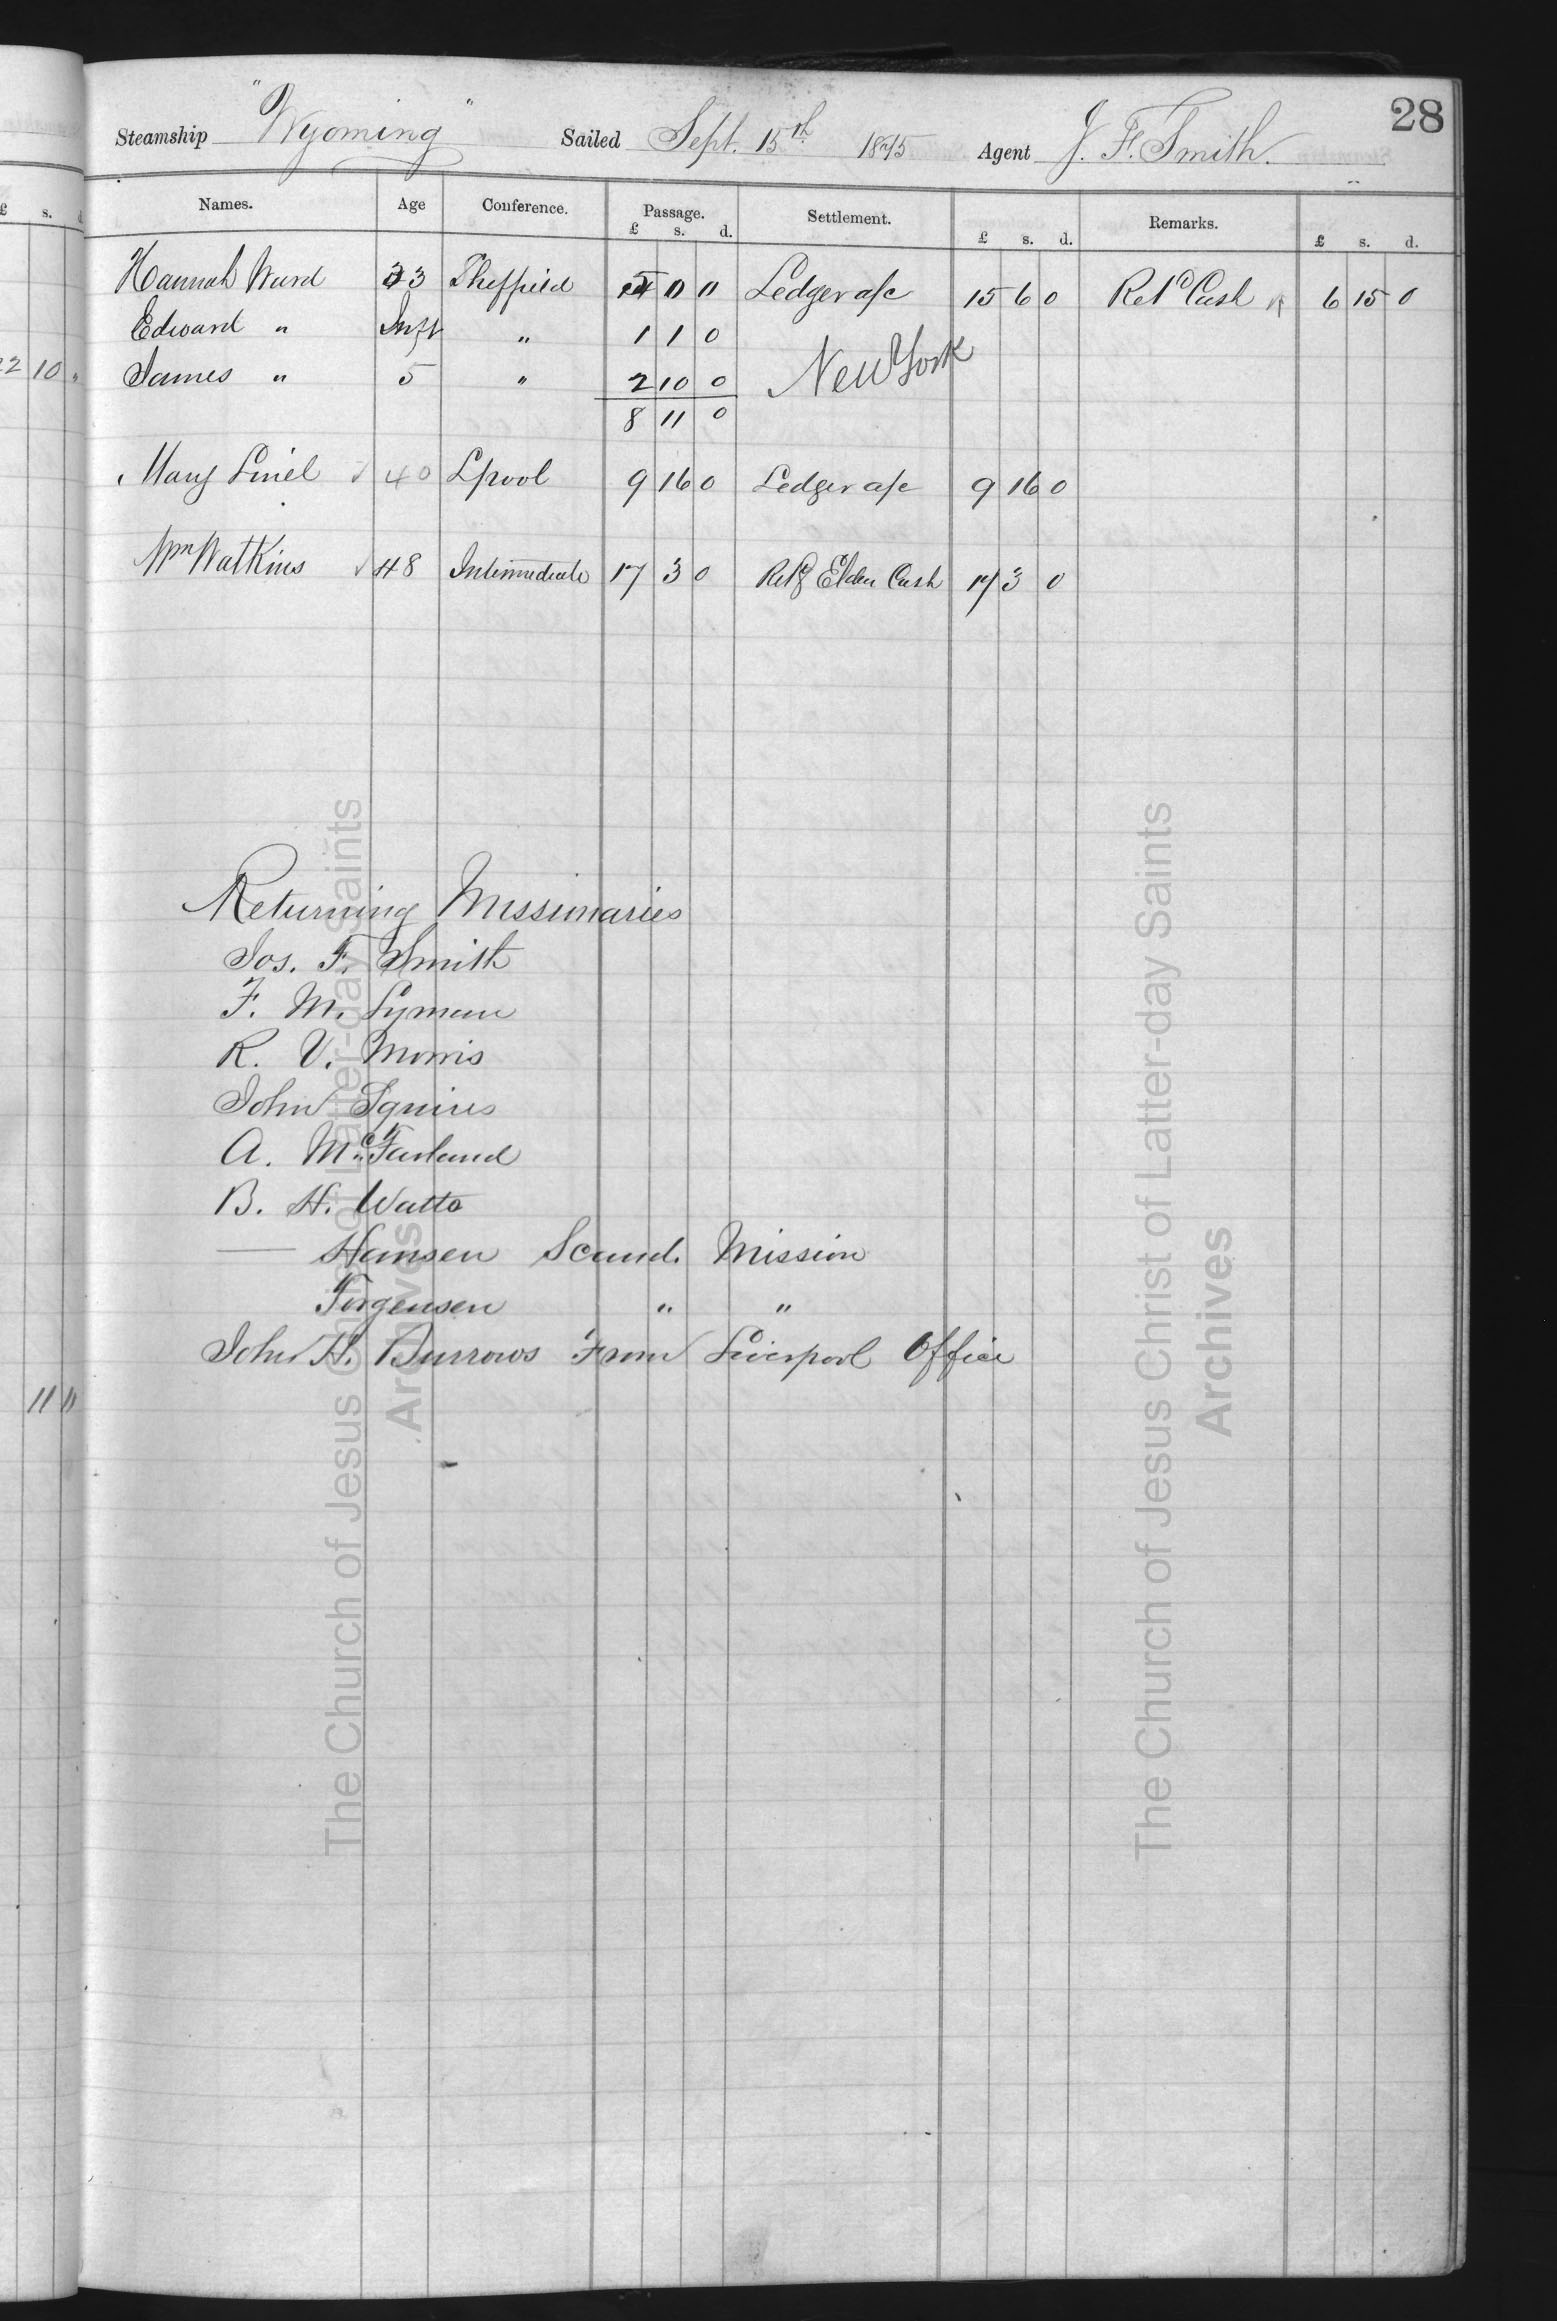 28
Steamship "Wyoming" Sailed Sept. 15th 1875 Agent J. F. Smith.
Names. Age Conference. Passage. Settlement. Remarks.
£ s. d. £ s. d. £ s. d.
Hannah Ward 33 Sheffield 0 0 Ledger a/c 15 6 0 Retd Cash 6 15 0
Edward " Inft " 1 1 0
James " 5 " 2 10 0 New York
8 11 0
Mary 40 Lpool 9 16 0 Ledger a/c 9 16 0
Wm Watkins 48 Intermediate 17 3 0 Elder Cash 17 3 0
Returning Missionaries
Jos. F. Smith
F. M. Lyman
R. V. Morris
John Squires
A. McFarland
B. H. Watts
— Hansen Scand. Mission
Jorgensen " "
John H. Burrows From Liverpool Office
£ s. d.
22 10 "
11 11
The Church of Jesus Christ of Latter-day Saints
Archives
The Church of Jesus Christ of Latter-day Saints
Archives